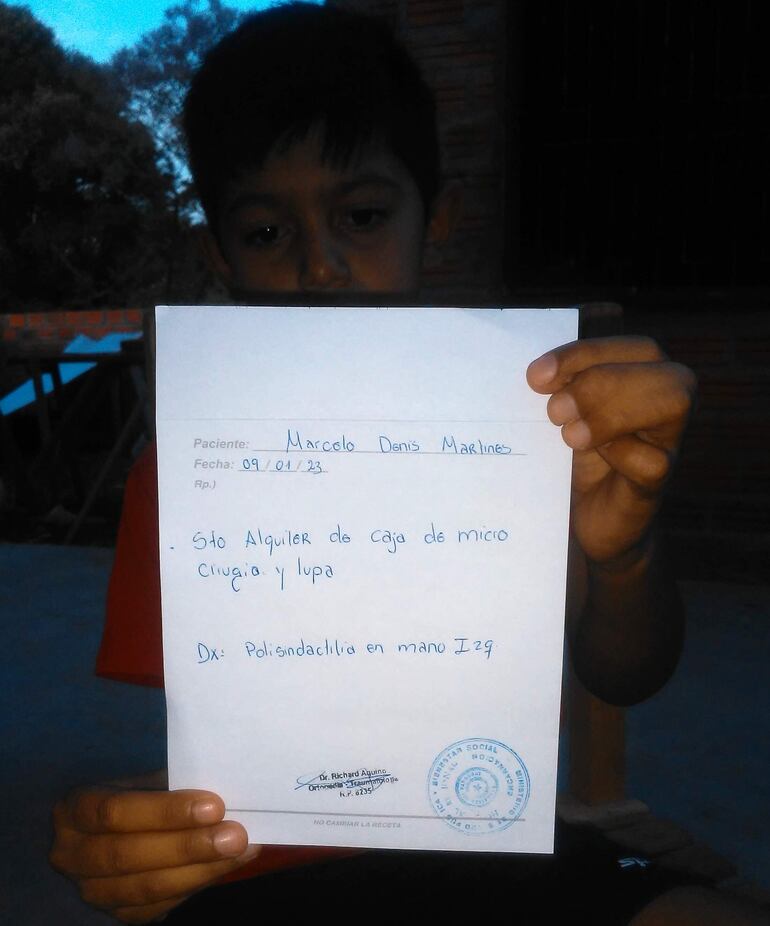 Paciente: Marcelo Denis Martines
Fecha: 09 / 01 / 23
Rp.)
. Sto Alquiler de caja de micro
cirugia y lupa
Dx: Polisindactilia en mano Izq.
Dr. Richard Aquino
Ortopedia - Traumatología
R.P. 8235
BIENESTAR SOCIAL
MINISTERIO DE S
NO CAMBIAR LA RECETA